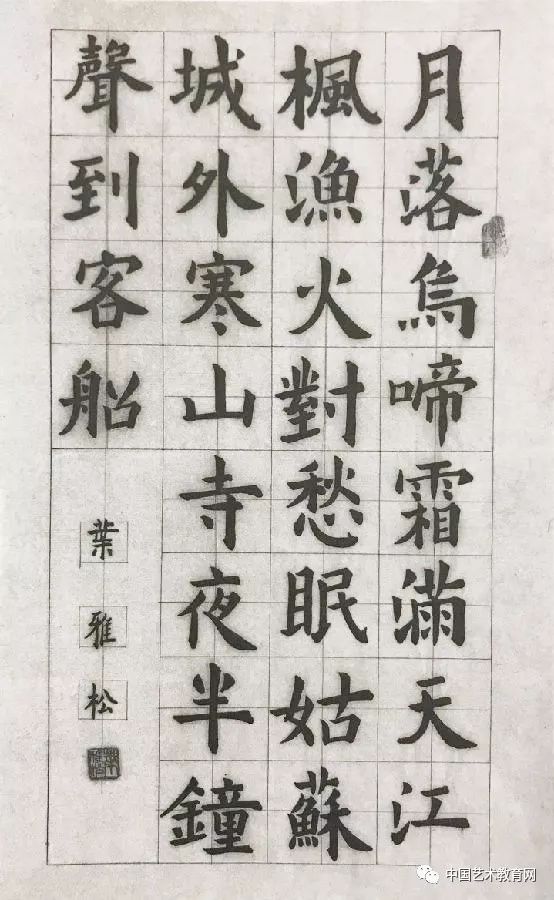 月落烏啼霜滿天江
楓漁火對愁眠姑蘇
城外寒山寺夜半鐘
聲到客船
葉雅松
中国艺术教育网